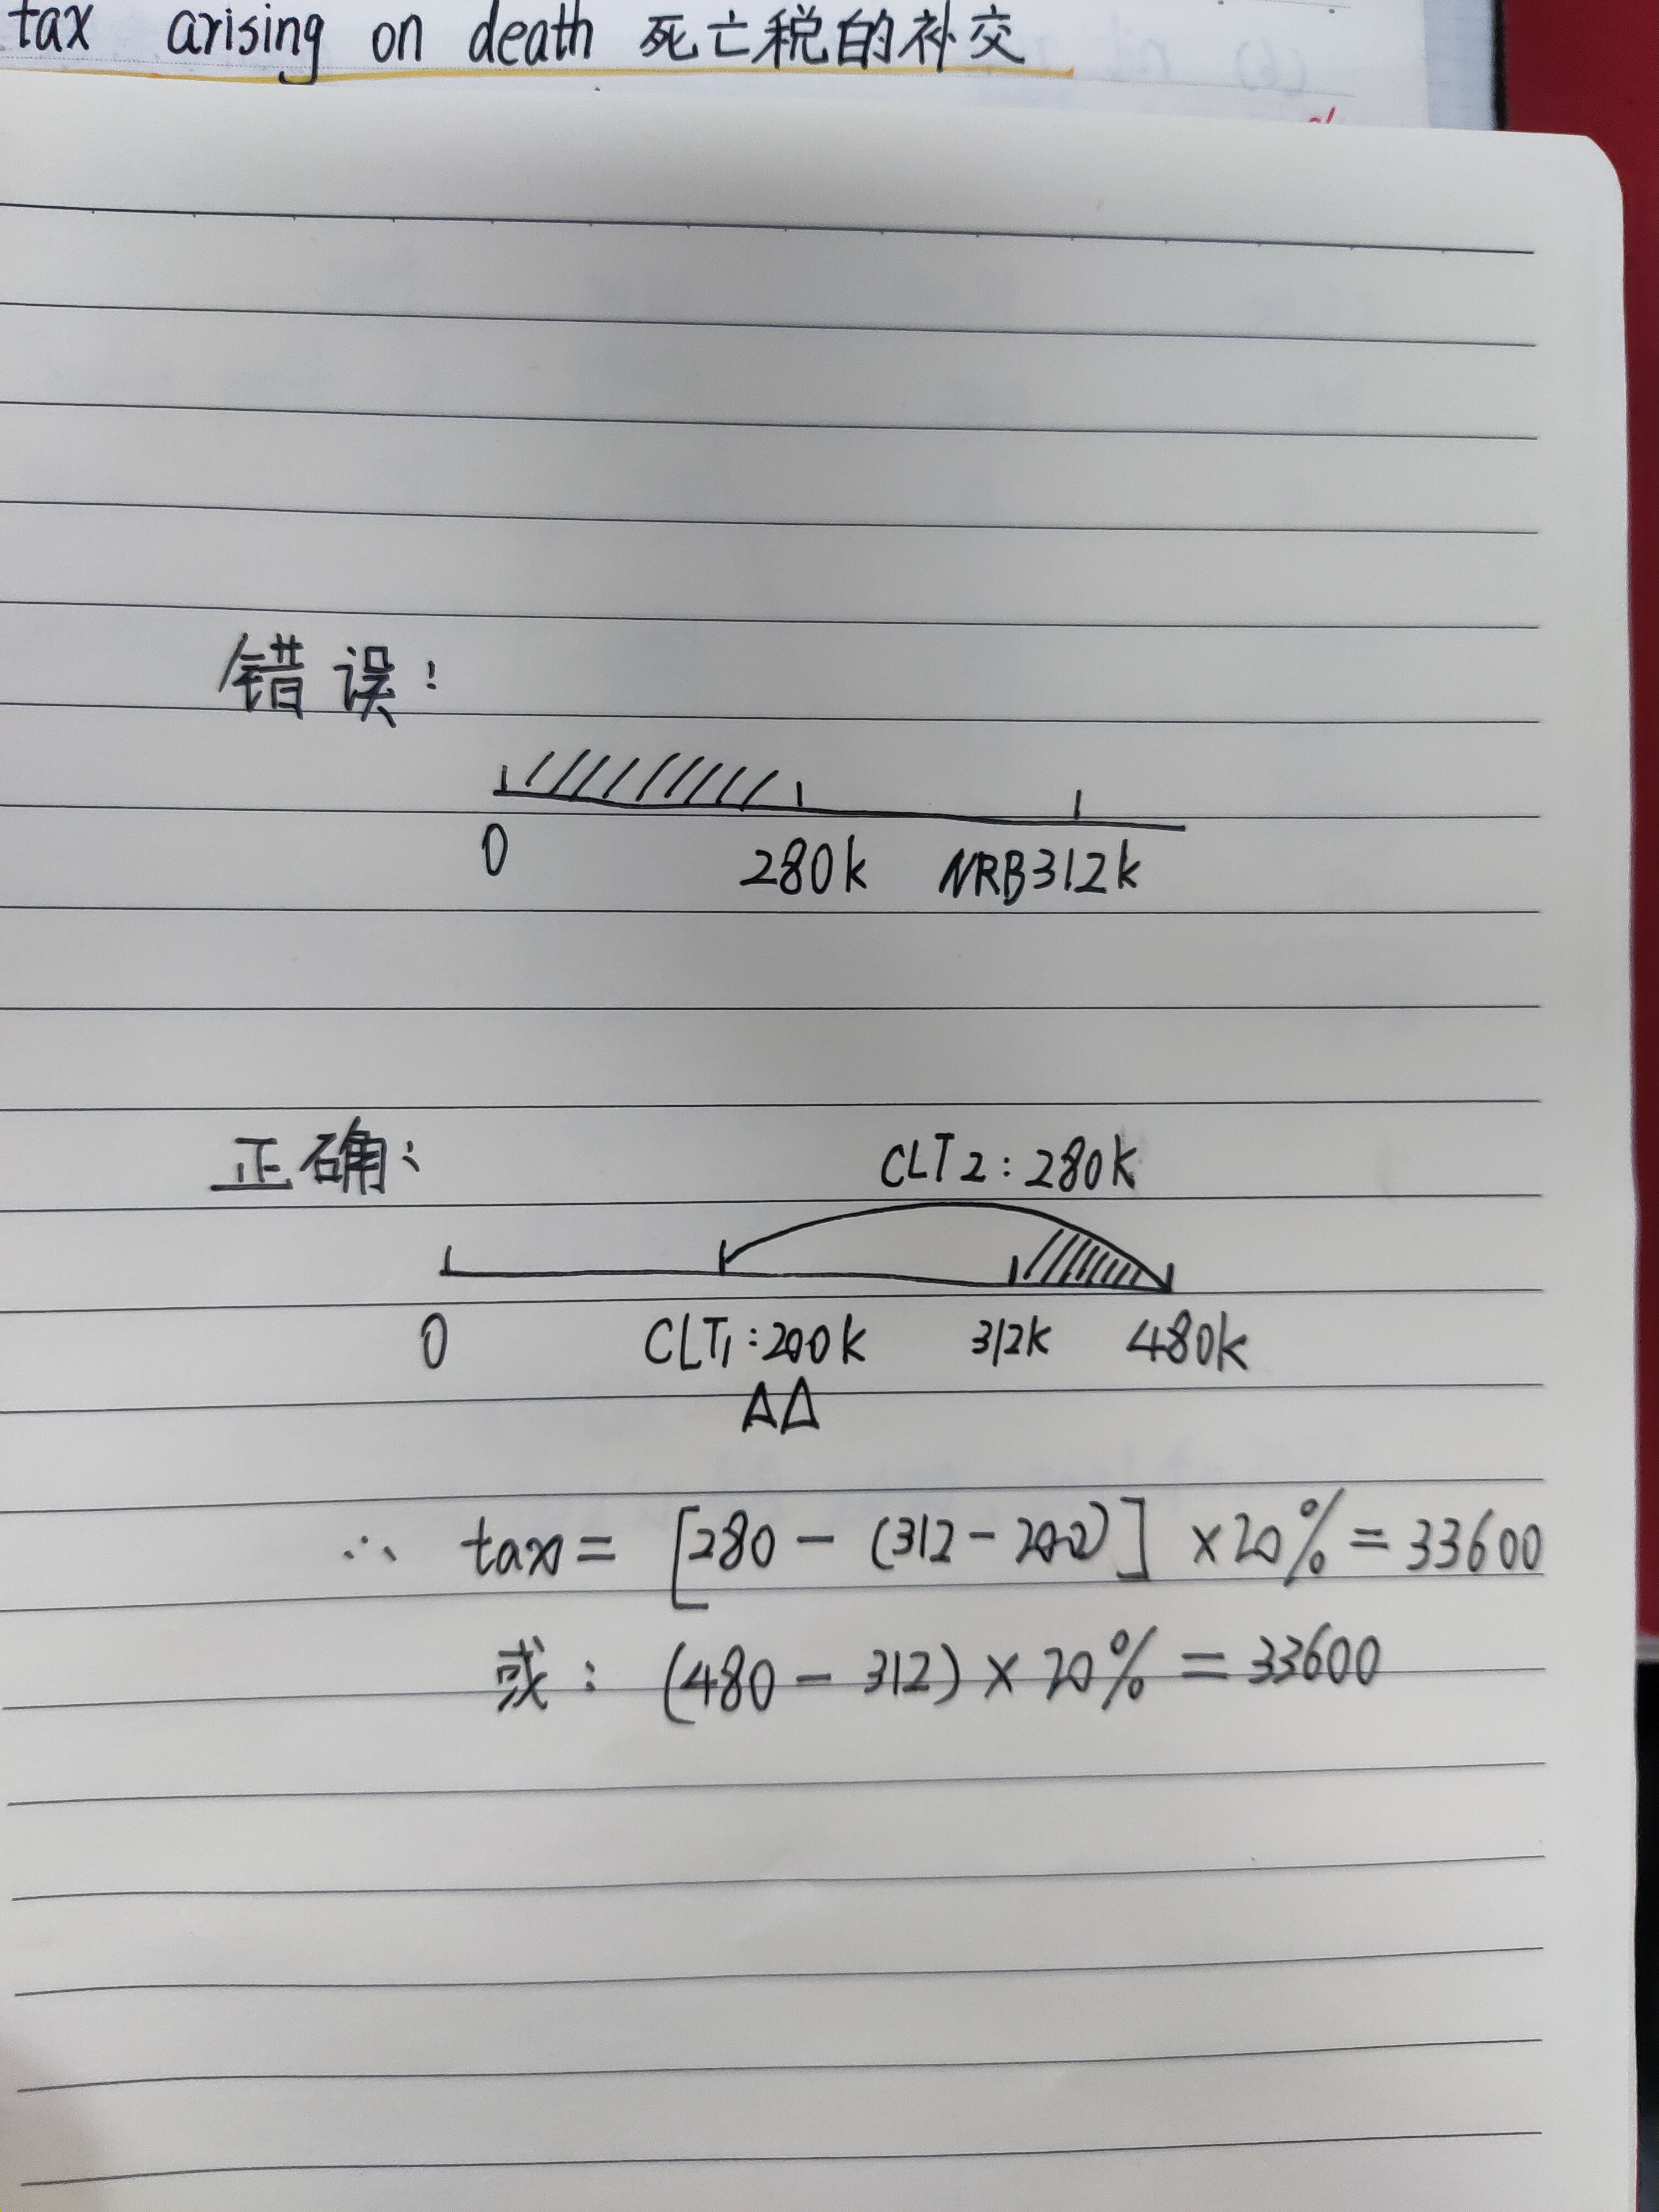 tax arising on death 死亡税的补交
错误:
0 280k NRB312k
正确:
CLT2:280k
0 CLT1:200k 312k 480k
△△
∴ tax= [280-(312-200)] ×20%=33600
或: (480-312)×20%=33600